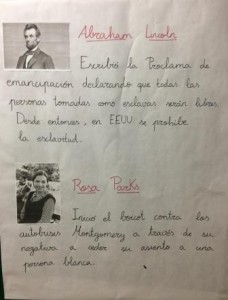 Abraham Lincoln
Escribió la Proclama de
emancipación declarando que todas las
personas tomadas como esclavas serán libres.
Desde entonces, en EEUU se prohíbe
la esclavitud.
Rosa Parks
Inició el boicot contra los
autobuses Montgomery a través de su
negativa a ceder su asiento a una
persona blanca.